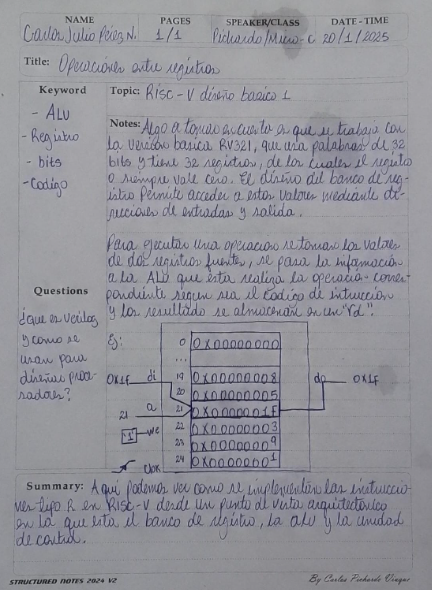 NAME PAGES SPEAKER/CLASS DATE - TIME
Carlos Julio Pérez N. 1/1 Pichardo/Micro-c 20/1/2025
Title: Operaciones entre registros
Keyword Topic: Risc-V diseño basico 1
- ALU
- Registro
- bits
- Codigo
Notes: Algo a tomar en cuenta es que se trabaja con
la versión basica RV32I, que usa palabras de 32
bits y tiene 32 registros, de los cuales el registro
0 siempre vale cero. El diseño del banco de reg-
istro permite acceder a estos valores mediante di-
recciones de entradas y salida.
Para ejecutar una operación se toman los valores
de dos registros fuentes, se pasa la información
a la ALU que esta realiza la operacio- corres-
pondiente segun sea el codigo de intruccion
y los resultado se almacenan en un "rd".
Questions
¿que es verilog
y como se
usan para
diseñar proce-
sadores?
Ej:
0 0x00000000
...
19 0x00000008
20 0x00000005
21 0x0000001F
22 0x00000003
23 0x00000009
24 0x00000001
0x1F di
21 a
1 we
clk
do 0x1F
Summary: Aqui podemos ver como se implementan las instruccio-
nes tipo R en Risc-V desde un punto de vista arquitectonico
en la que esta el banco de registro, la alu y la unidad
de control.
STRUCTURED NOTES 2024 V2 By Carlos Pichardo Vicque